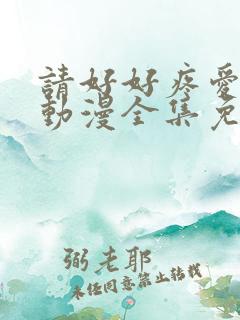 請好好疼愛
動漫全集免
弼老耶
未经同意禁止转载